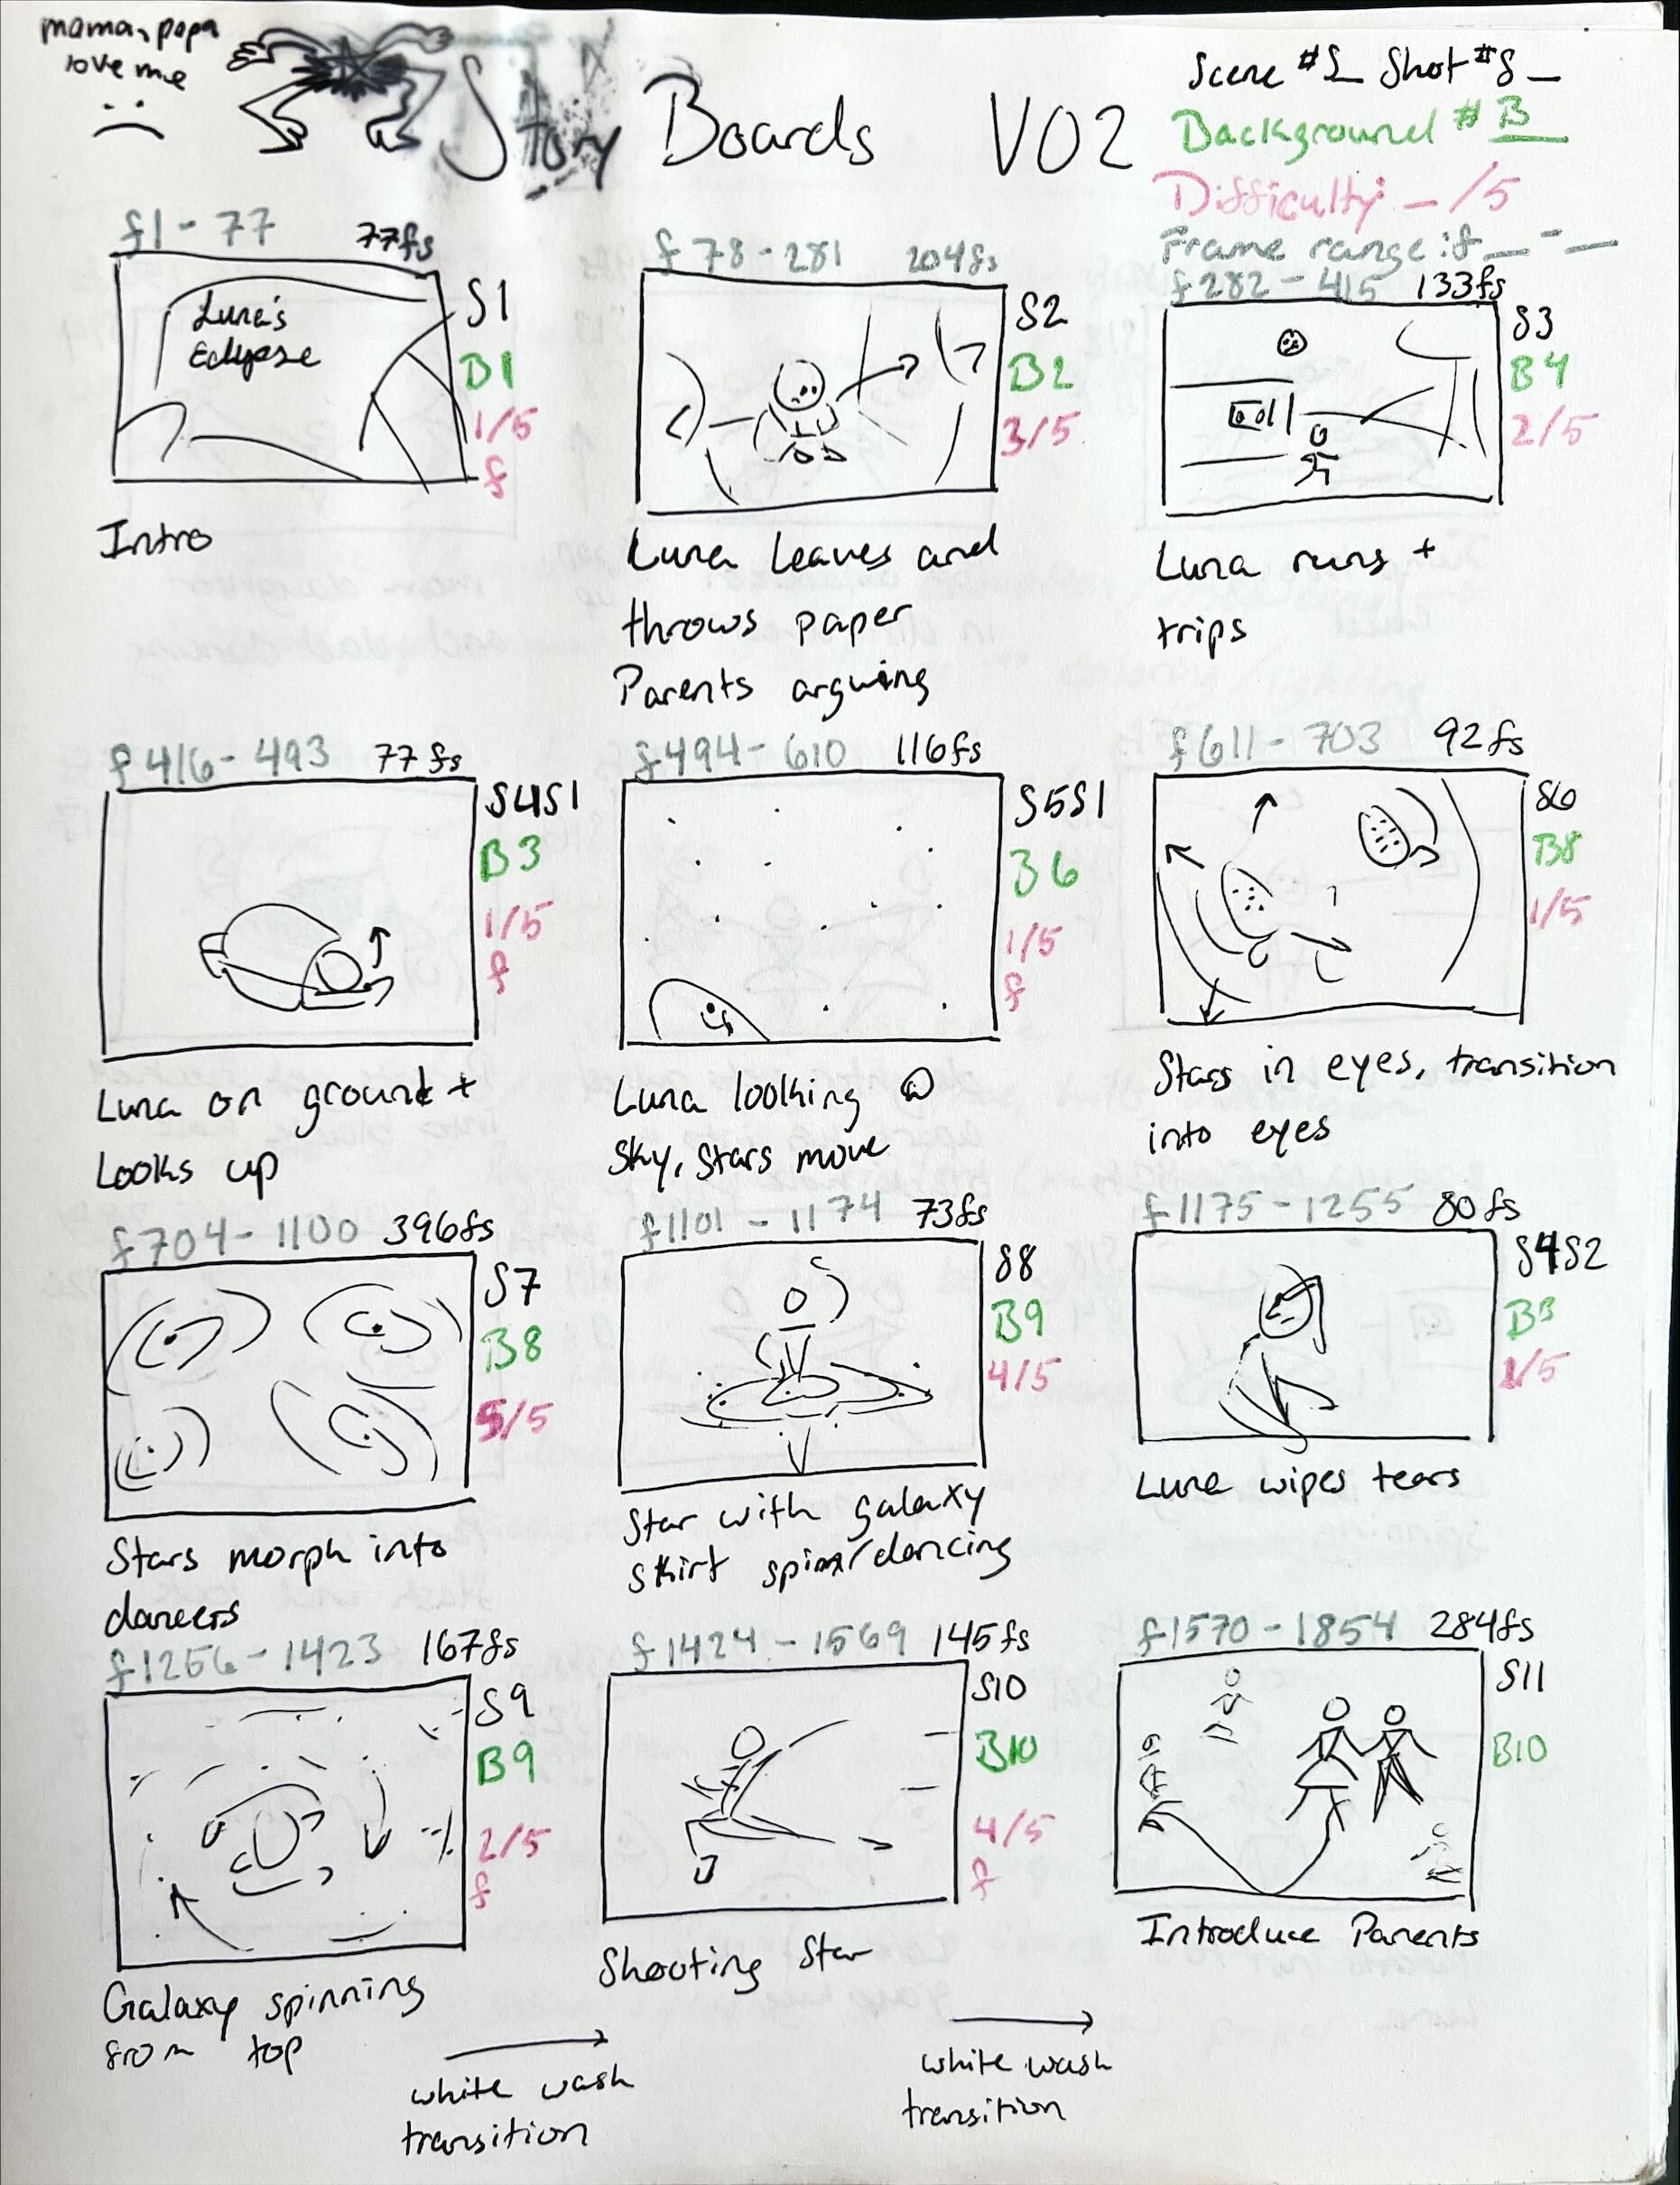 mama, papa
love me
Story Boards V02
Scene #S_ Shot #S_
Background # B
Difficulty _/5
Frame range: f_-_
f1-77 77fs
Luna's
Eclipse
S1
B1
1/5
f
Intro
f78-281 204fs
S2
B2
3/5
Luna leaves and
throws paper
Parents arguing
f282-415 133fs
S3
B4
2/5
Luna runs +
trips
f416-493 77fs
S4S1
B3
1/5
f
Luna on ground +
Looks up
f494-610 116fs
S5S1
B6
1/5
f
Luna looking @
sky, stars move
f611-703 92fs
S6
B8
1/5
Stars in eyes, transition
into eyes
f704-1100 396fs
S7
B8
5/5
Stars morph into
dancers
f1101-1174 73fs
S8
B9
4/5
Star with galaxy
skirt spins/dancing
f1175-1255 80fs
S4S2
B3
1/5
Luna wipes tears
f1256-1423 167fs
S9
B9
2/5
f
Galaxy spinning
from top
white wash
transition
f1424-1569 145fs
S10
B10
4/5
f
Shooting Star
white wash
transition
f1570-1854 284fs
S11
B10
Introduce Parents